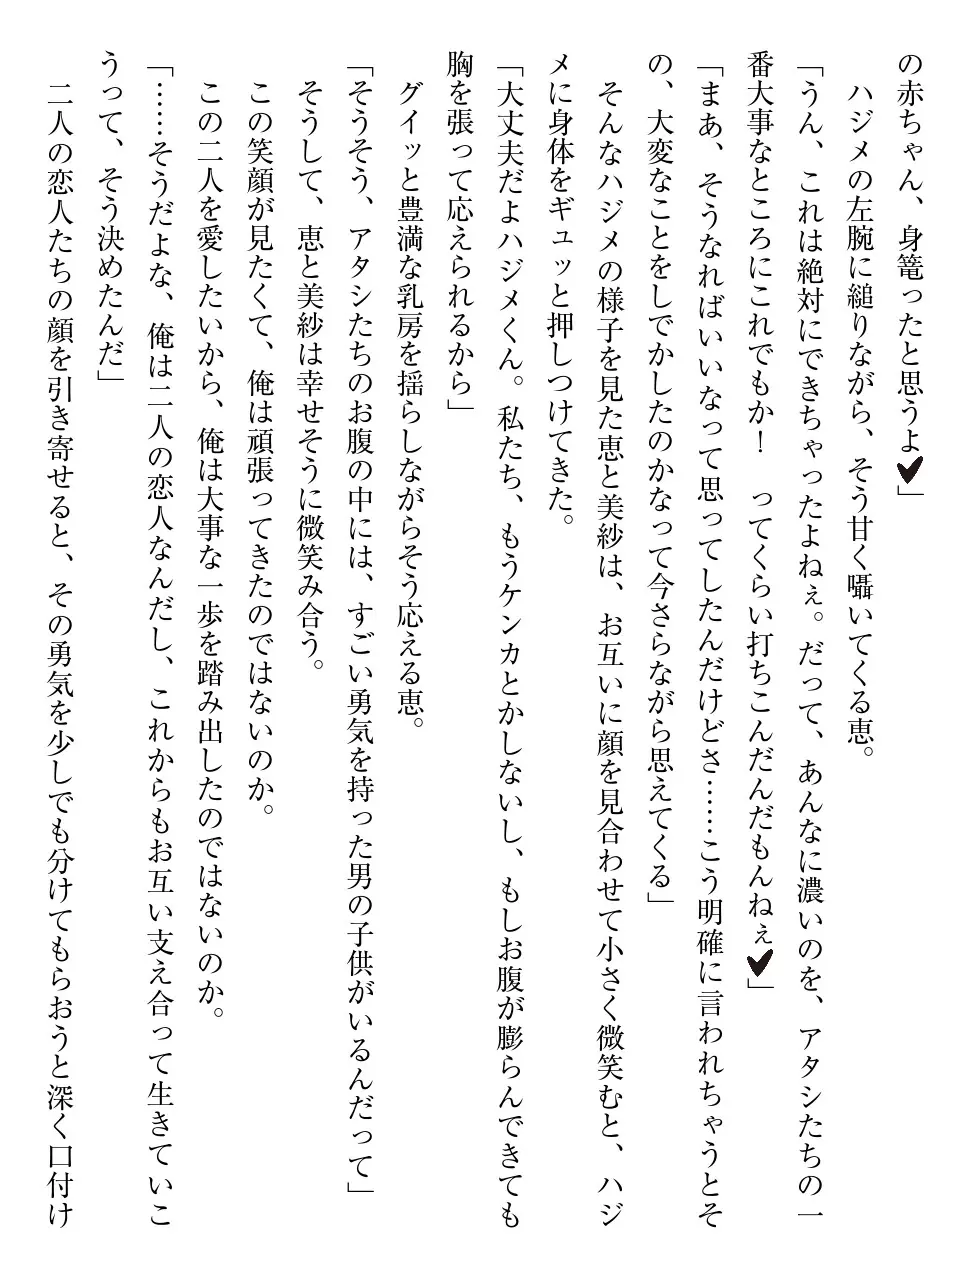 の赤ちゃん、身篭ったと思うよ♥」
　ハジメの左腕に縋りながら、そう甘く囁いてくる恵。
「うん、これは絶対にできちゃったよねぇ。だって、あんなに濃いのを、アタシたちの一
番大事なところにこれでもか！　ってくらい打ちこんだんだもんねぇ♥」
「まあ、そうなればいいなって思ってしたんだけどさ……こう明確に言われちゃうとそ
の、大変なことをしでかしたのかなって今さらながら思えてくる」
　そんなハジメの様子を見た恵と美紗は、お互いに顔を見合わせて小さく微笑むと、ハジ
メに身体をギュッと押しつけてきた。
「大丈夫だよハジメくん。私たち、もうケンカとかしないし、もしお腹が膨らんできても
胸を張って応えられるから」
　グイッと豊満な乳房を揺らしながらそう応える恵。
「そうそう、アタシたちのお腹の中には、すごい勇気を持った男の子供がいるんだって」
　そうして、恵と美紗は幸せそうに微笑み合う。
　この笑顔が見たくて、俺は頑張ってきたのではないのか。
　この二人を愛したいから、俺は大事な一歩を踏み出したのではないのか。
「……そうだよな、俺は二人の恋人なんだし、これからもお互い支え合って生きていこ
うって、そう決めたんだ」
　二人の恋人たちの顔を引き寄せると、その勇気を少しでも分けてもらおうと深く口付け